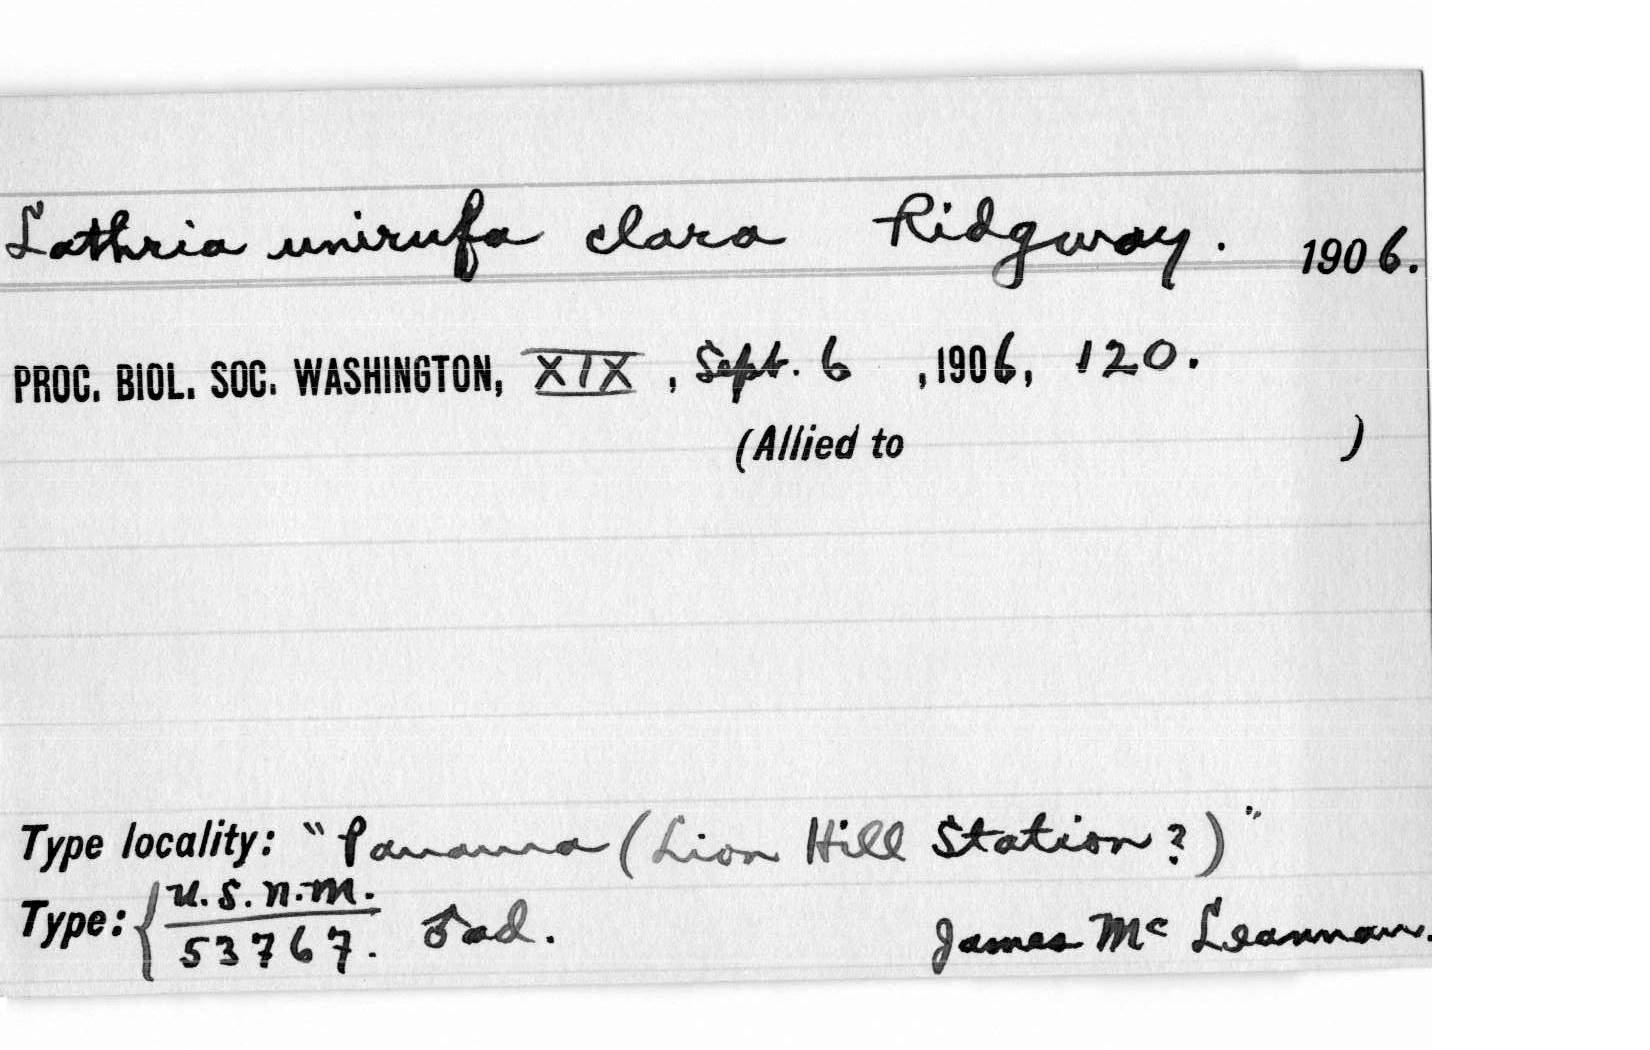 Lathria unirufa clara Ridgway. 1906.
PROC. BIOL. SOC. WASHINGTON, XIX, Sept. 6, 1906, 120.
(Allied to )
Type locality: "Panama (Lion Hill Station?)"
Type: { U.S.N.M.
53767. ♂ ad. James Mc Leannan.